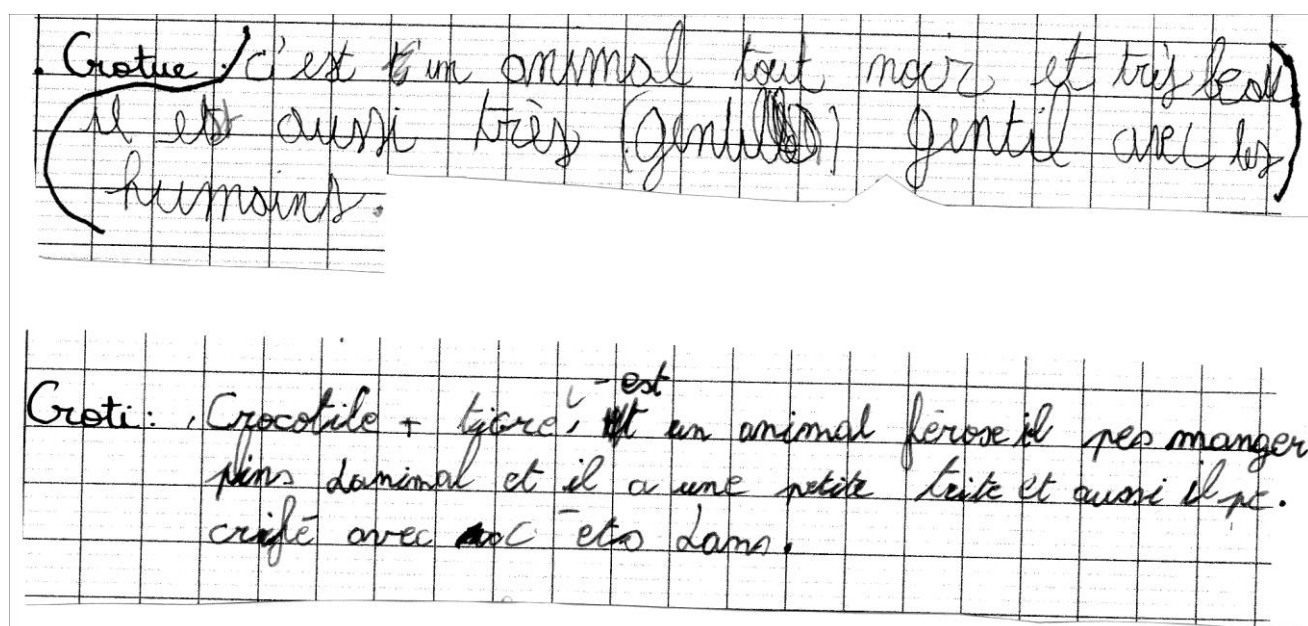 . Crotue : c'est un animal tout noir et très beau
il est aussi très (gentille) gentil avec les
humains.
Croti : Crocotile + tigre, c'est un animal férose il peo manger
plins danimal et il a une petite teite et aussi il pe.
crifé avec c ets dans.